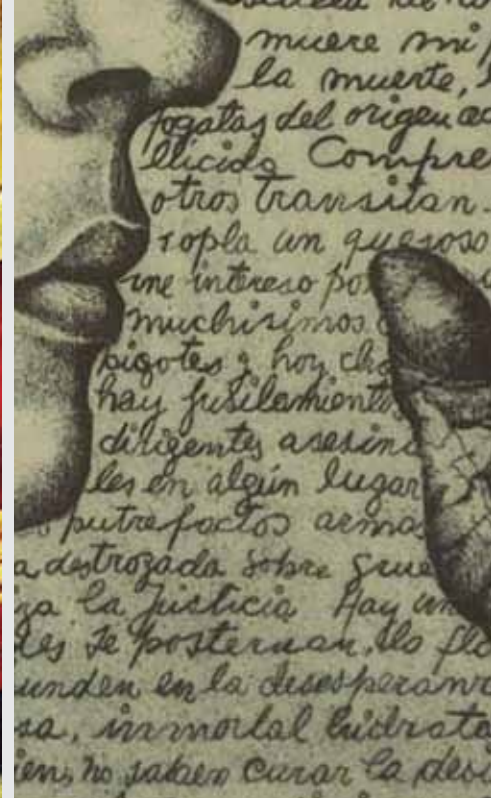 muere mi
la muerte,
fogatas del origen
Compre
otros transitan.
sopla un
me intereso po
muchisimos
bigotes y hoy
hay fusilamiento
dirigentes asesin
les en algún lugar
putrefactos armas
a destrozada sobre grue
za la Justicia Hay un
les se posternan. 
unden en la desesperan
sa, inmortal
ien, no saben curar la